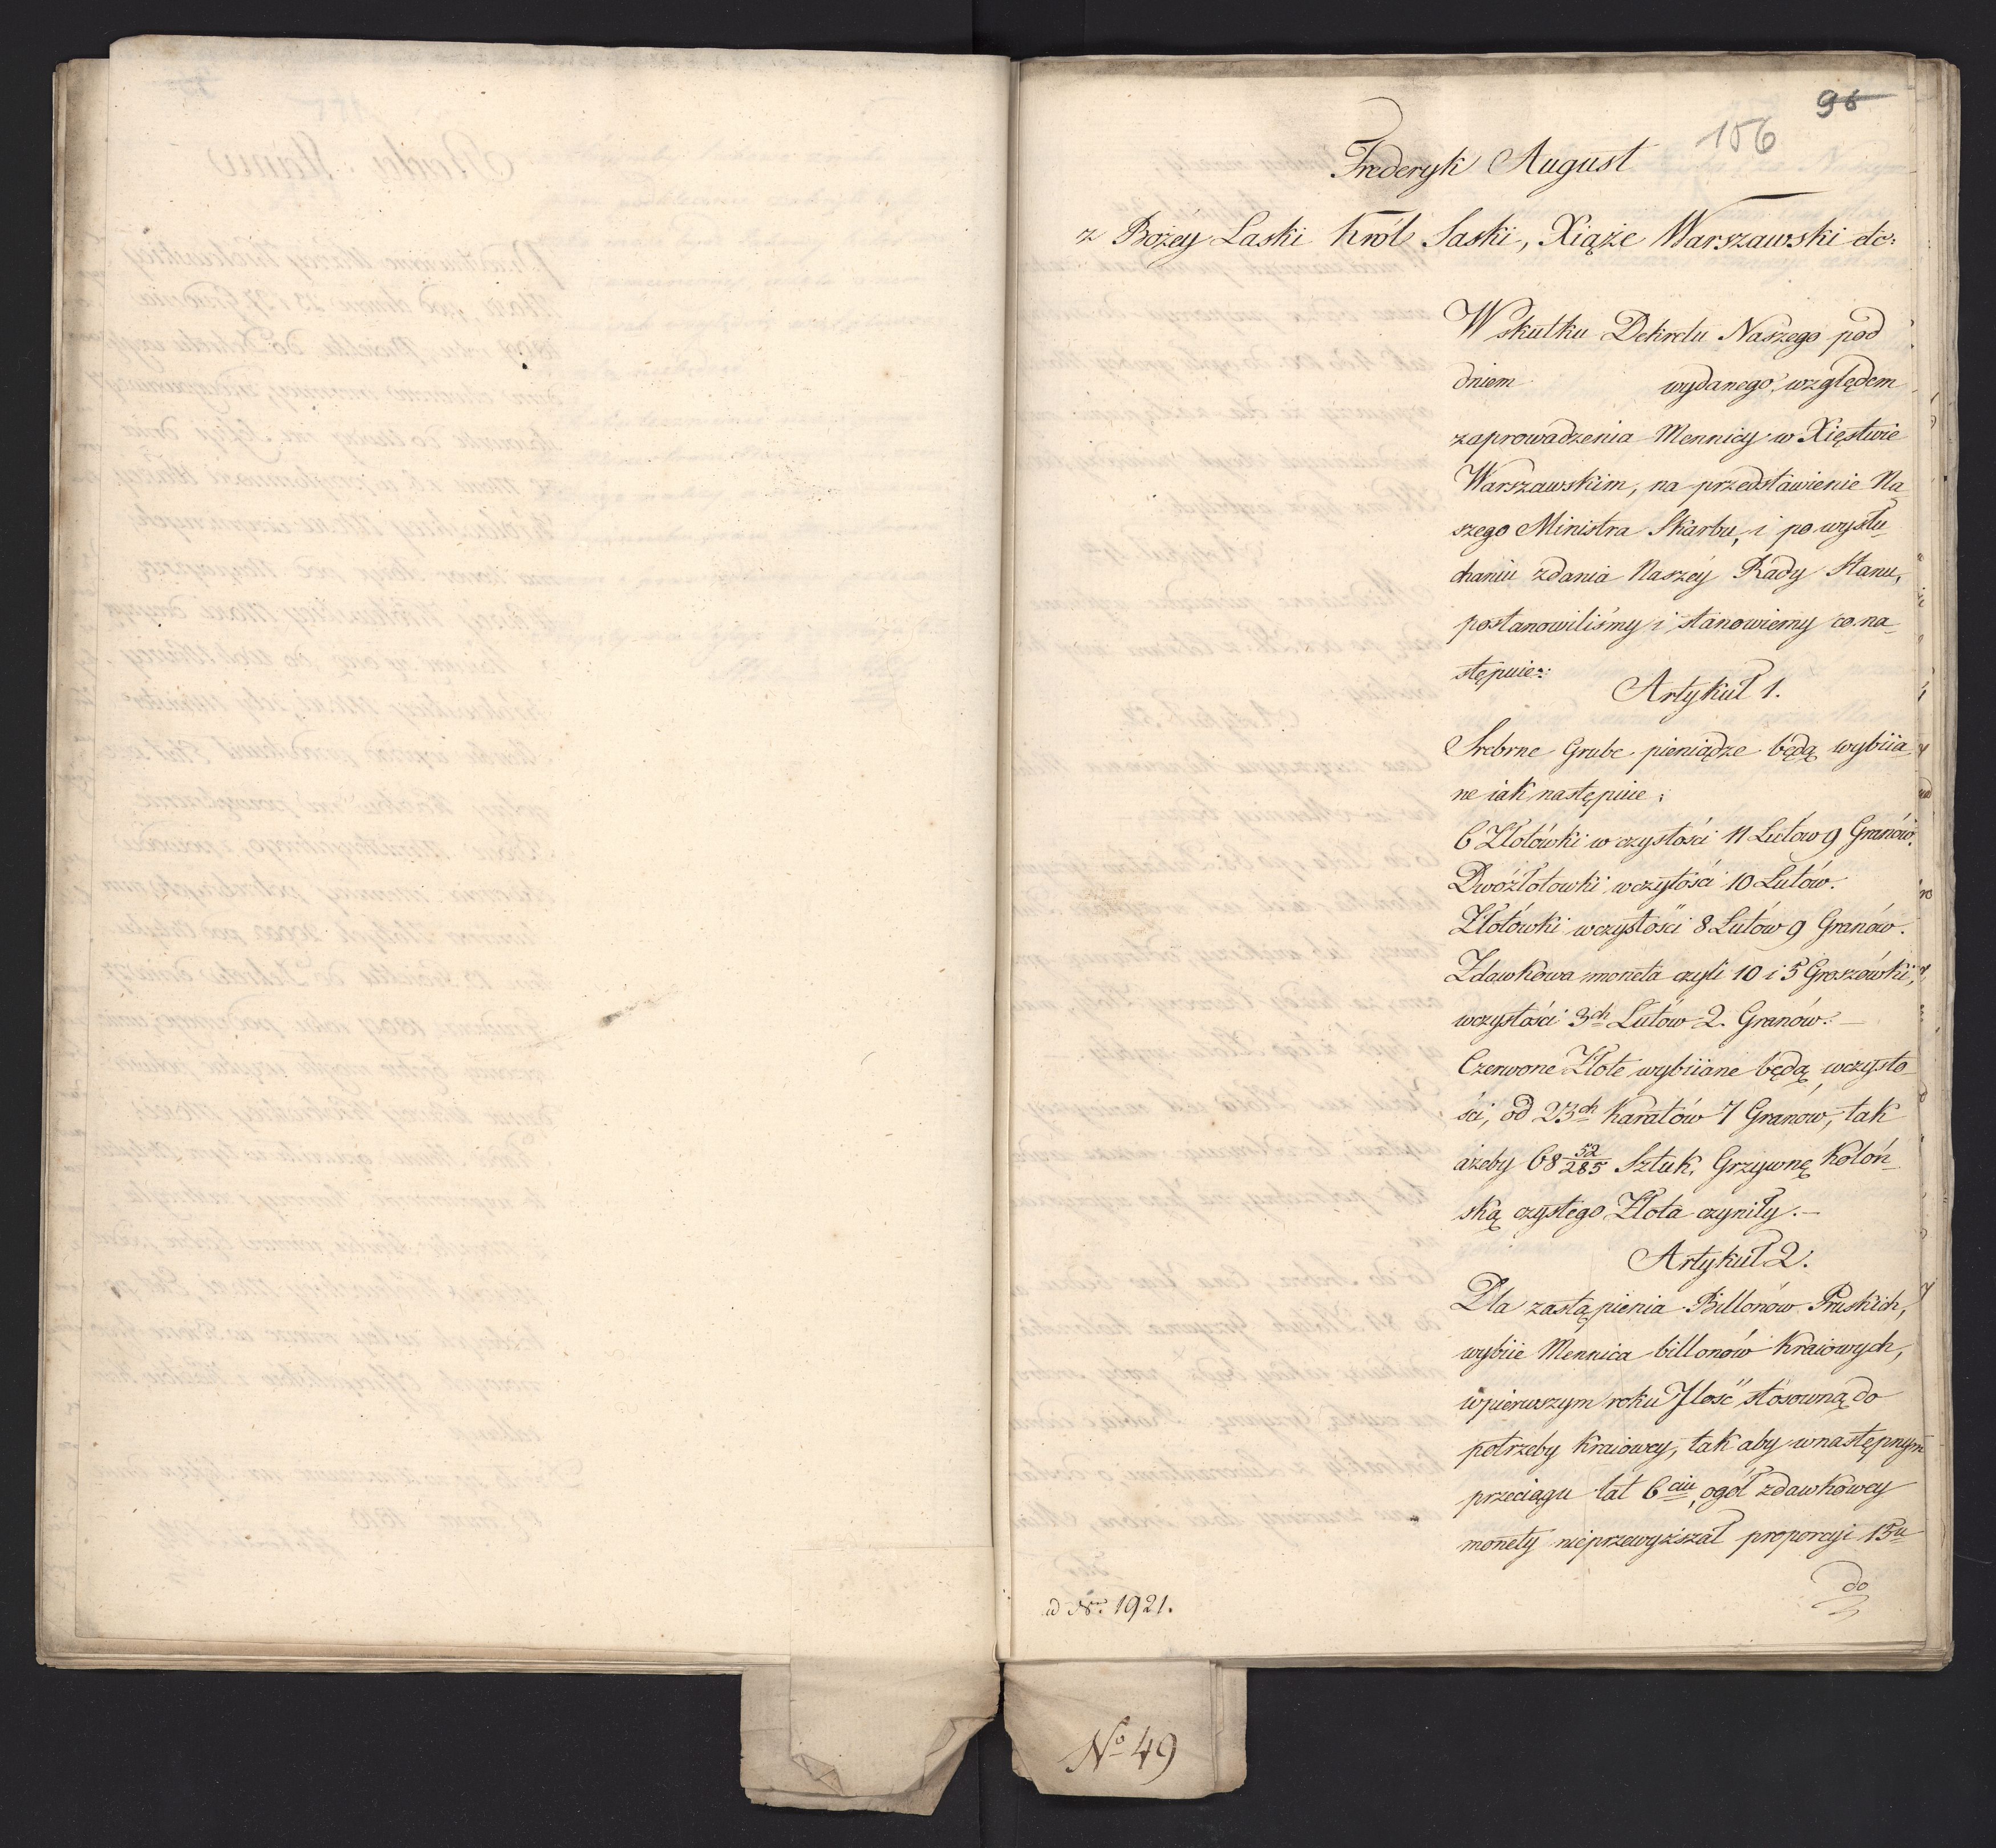 96
156
Frederyk August
z Bożey Łaski Król Saski, Xiąże Warszawski etc:
W skutku Dekretu Naszego pod
dniem wydanego, względem
zaprowadzenia Mennicy w Xięstwie
Warszawskim, na przedstawienie Na
szego Ministra Skarbu, i po wysłu
chaniu zdania Naszéy Rady Stanu,
postanowiliśmy i stanowiemy co na
stępuie:
Artykuł 1.
Srebrne Grube pieniądze będą wybiia
ne iak następuie:
6 Złotówki w czystości 11 Łutów 9 Granów.
Dwózłotowki w czystości 10 Łutów.
Złotówki w czystości 8 Łutów 9 Granów.
Zdawkowa moneta czyli 10 i 5 Groszówki,
w czystości 3ch Łutów 2. Granów.
Czerwone Złote wybiiane będą w czysto
ści, od 23ch Karatów 7 Granów, tak
ażeby 68 52/285 Sztuk, Grzywnę Kolóń
ską czystego Złota czyniły.
Artykuł 2.
Dla zastąpienia Billonów Pruskich,
wybiie Mennica billonów kraiowych,
w pierwszym roku Jlość stósowną do
potrzeby kraiowey, tak aby w następnym
przeciągu lat 6ciu, ogół zdawkowey
monety nieprzewyższał proporcyi 15u
do
ad Nr 1921.
No 49